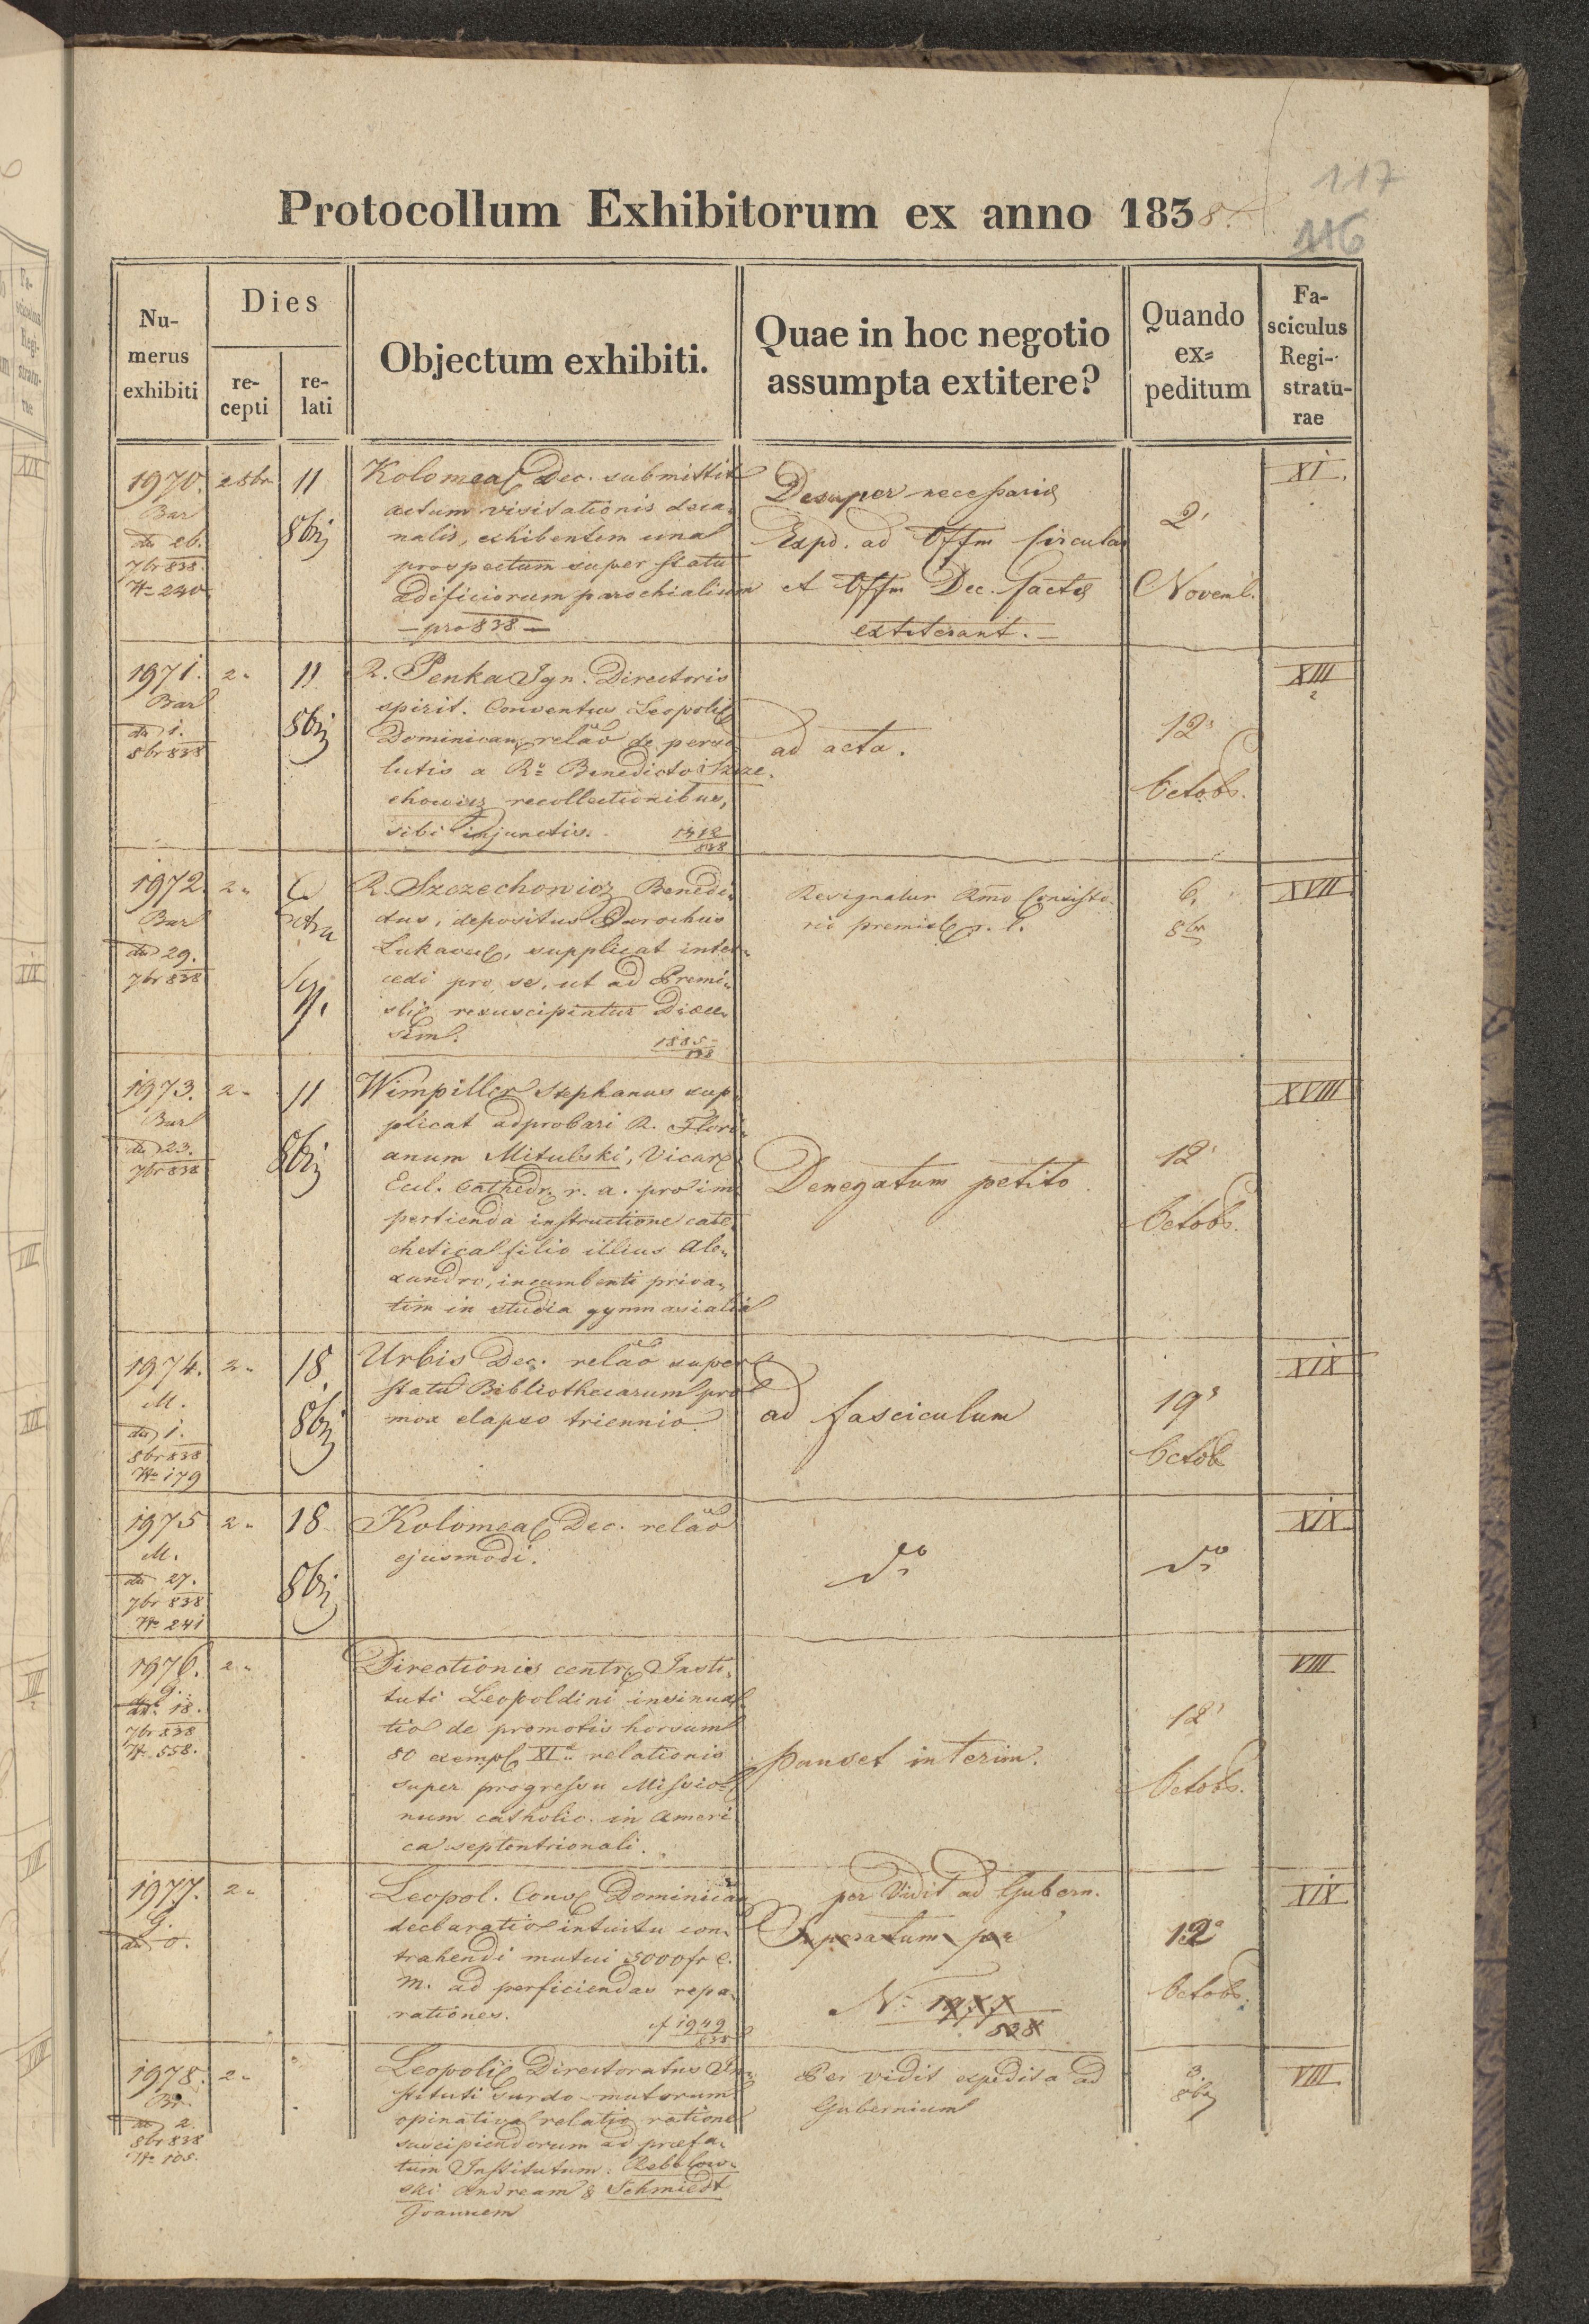 117
116
Protocollum Exhibitorum ex anno 1838.
Numerus exhibiti
Dies
recepti
relati
Objectum exhibiti.
Quae in hoc negotio assumpta extitere?
Quando ex=peditum
Fasciculus Regi-straturae
1970.
Bar
do 26.
7br 838.
No 240
2 8br
11
8bris
Kolomeae Dec. submittit
actum visitationis deca„
nalis, exhibentem una
prospectum super statu
aedificiorum parochialium
— pro 838 —
Desuper necessariae
Expd. ad Offm Circular
et Offm Dec. factae
extiterant. —
2.
Novemb.
XI.
1971.
Bar
do 1.
8br 838
2„
11
8bris
R. Penka Ign. Directoris
spirit. Conventus Leopoli
Dominican. relao de perso„
lutis a Ro Benedicto Szcze„
chowicz recollectionibus,
sibi injunctis. 1312
838
ad acta.
12
Octobr.
XIII
2
1972.
Bar
do 29.
7br 838
2„
6
extra
Sess.
R. Szczechowicz Benedi„
ctus, depositus Parochus
Lukaviec, supplicat inter„
cedi pro se, ut ad Premi„
slie resuscipiatur Dioece„
sim. 1885
838
Resignatur Rmo Consisto
rio premisl r. l.
6.
8br
XVII
1973.
Bar
do 23.
7br 838
2„
11
8bris
Wimpiller Stephanus sup„
plicat adprobari R. Flori„
anum Mitulski, Vicar
Eccl. Cathedr. r. a. pro im„
pertienda instructione cate„
chetica filio illius Ale„
xandro, incumbenti priva„
tim in studia gymnasialia
Denegatum petito
12
Octobr.
XVIII
1974.
M.
do 1.
8br 838
No 179
2„
18
8bris
Urbis Dec. relao super
statu Bibliothecarum pro
mox elapso triennio
ad fasciculum
19
Octob
XIX
1975
M.
do 27.
7br 838
No 241
2„
18
8bris
Kolomeae Dec. relao
ejusmodi.
do
do
XIX
1976.
G.
do 18.
7br 838
No 558.
2„
Directionis centr. Insti„
tuti Leopoldini insinua„
tio de promotis horsum
80 exempl XIae relationis
super progressu Missio„
num catholic. in Ameri
ca septentrionali.
pauset interim.
12
Octobr.
VIII
1977.
G.
do 0.
2„
Leopol. Conv. Dominican
declaratio intuitu con„
trahendi mutui 5000 fr C.
M. ad perficiendas repa„
rationes. cf 1949
838
per Vidit ad Gubern.
Superatum per
No 1977
838
12
Octobr.
XIX
1978.
Br.
do 2.
8br 838
No 105.
2„
Leopolie Directoratus In„
stituti surdo-mutorum
opinativa relatio ratione
suscipiendorum ad praefa„
tum Institutum: Rebelow„
ski Andream & Schmiedt
Joannem
Per vidit expedita ad
Gubernium
3.
8br
VIII